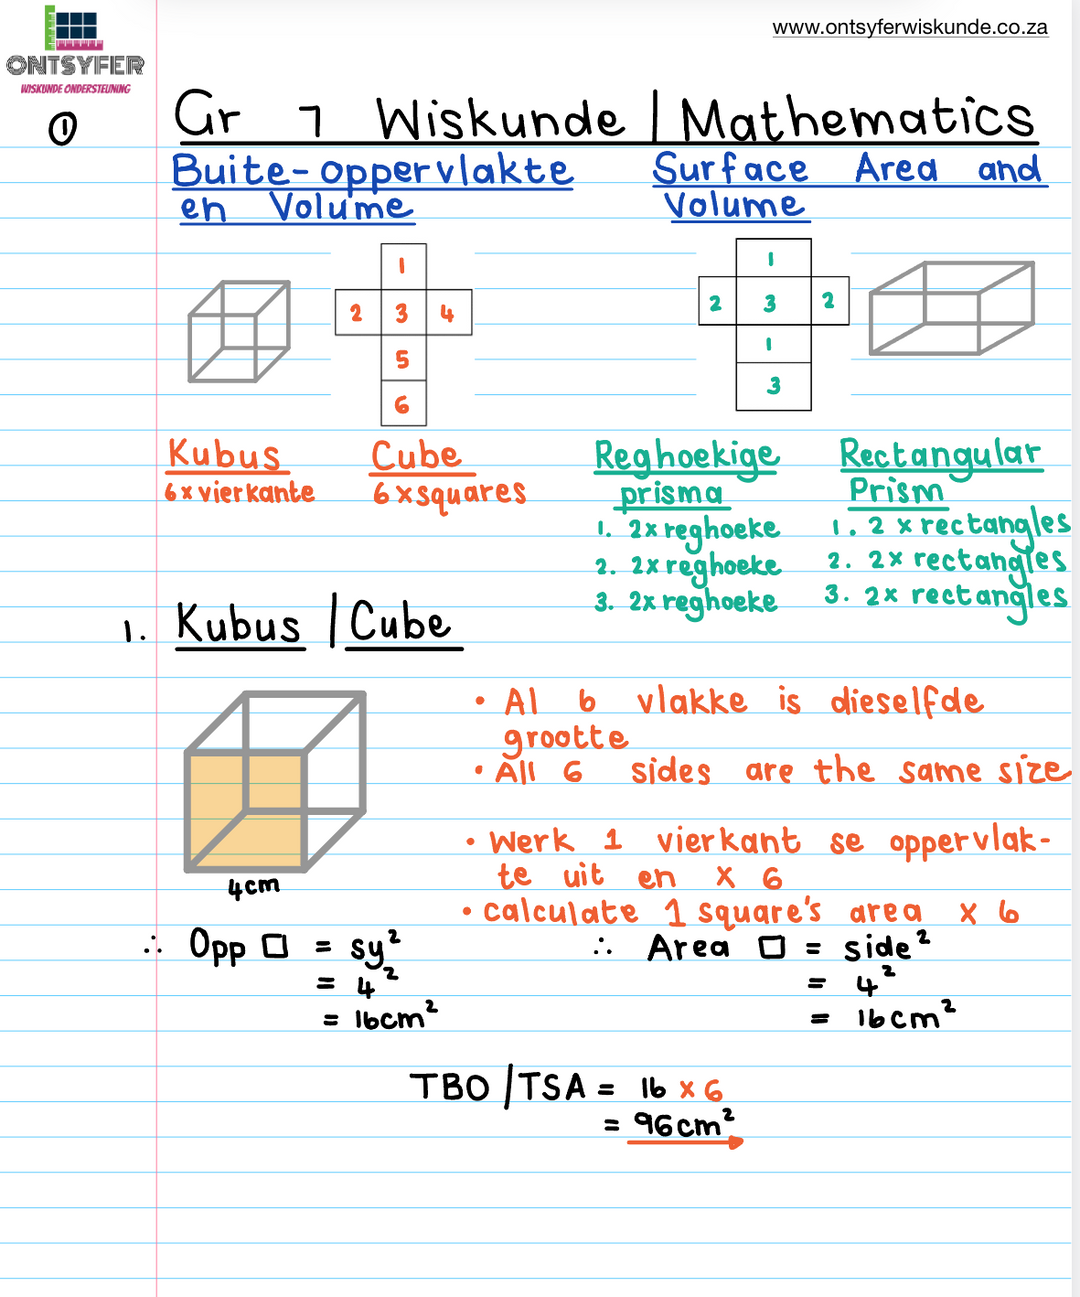 ONTSYFER
WISKUNDE ONDERSTEUNING
www.ontsyferwiskunde.co.za
①
Gr 7 Wiskunde | Mathematics
Buite-oppervlakte
en Volume
Surface Area and
Volume
1
2 3 4
5
6
1
2 3 2
1
3
Kubus
6 x vierkante
Cube
6 x squares
Reghoekige
prisma
1. 2x reghoeke
2. 2x reghoeke
3. 2x reghoeke
Rectangular
Prism
1. 2 x rectangles
2. 2x rectangles
3. 2x rectangles
1. Kubus | Cube
4cm
• Al 6 vlakke is dieselfde
grootte
• All 6 sides are the same size
• Werk 1 vierkant se oppervlak-
te uit en x 6
• calculate 1 square's area x 6
∴ Opp □ = sy²
= 4²
= 16cm²
∴ Area □ = side²
= 4²
= 16cm²
TBO | TSA = 16 x 6
= 96cm²